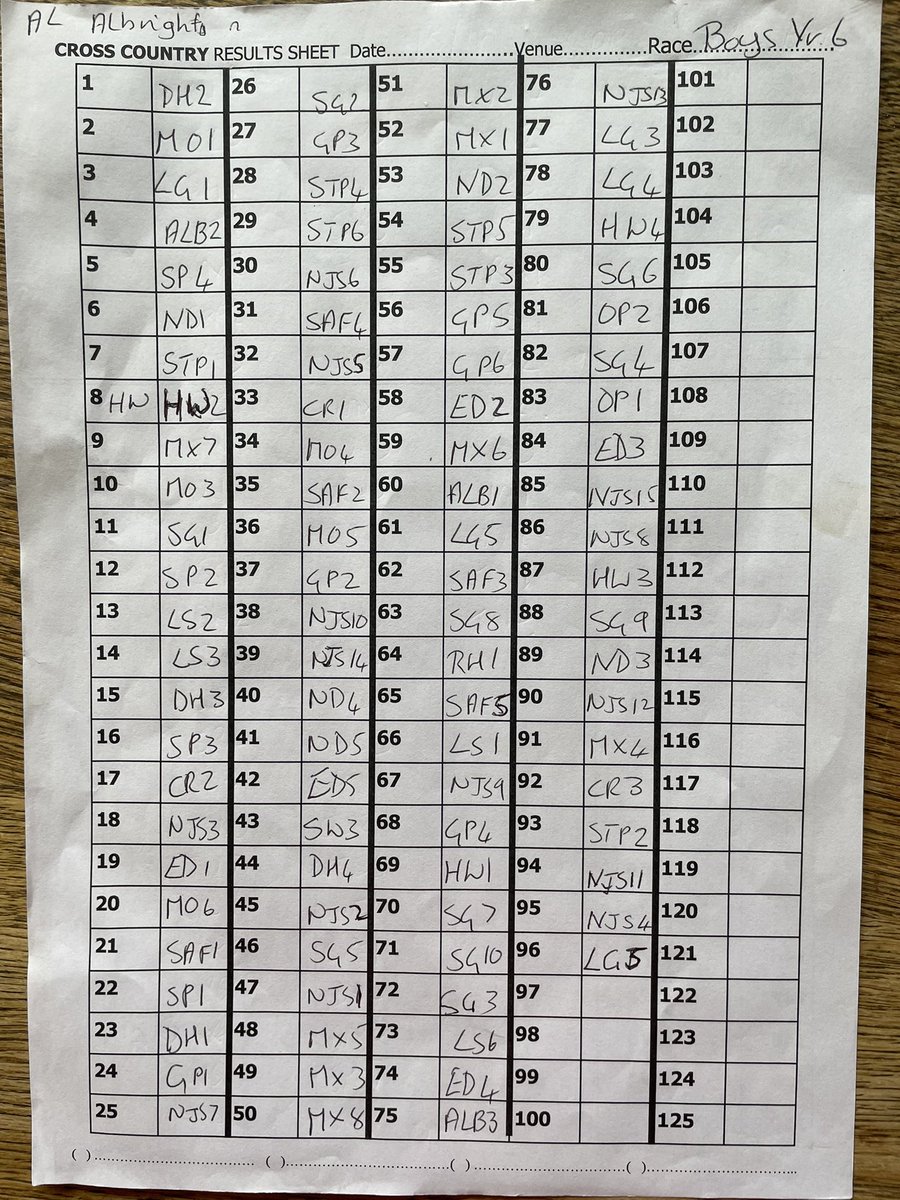 AL Albrighta n
CROSS COUNTRY RESULTS SHEET Date.................... Venue............... Race Boys Yr 6
1 DH2 26 SG2 51 MX2 76 NJS13 101
2 MO1 27 GP3 52 MX1 77 LG3 102
3 LG1 28 STP4 53 ND2 78 LG4 103
4 ALB2 29 STP6 54 STP5 79 HW4 104
5 SP4 30 NJS6 55 STP3 80 SG6 105
6 ND1 31 SAF4 56 GP5 81 OP2 106
7 STP1 32 NJS5 57 GP6 82 SG4 107
8 HW HW2 33 CR1 58 ED2 83 OP1 108
9 MX7 34 MO4 59 MX6 84 ED3 109
10 MO3 35 SAF2 60 ALB1 85 NJS15 110
11 SG1 36 MO5 61 LG5 86 NJS8 111
12 SP2 37 GP2 62 SAF3 87 HW3 112
13 LS2 38 NJS10 63 SG8 88 SG9 113
14 LS3 39 NJS14 64 RH1 89 ND3 114
15 DH3 40 ND4 65 SAF5 90 NJS12 115
16 SP3 41 ND5 66 LS1 91 MX4 116
17 CR2 42 ED5 67 NJS9 92 CR3 117
18 NJS3 43 SW3 68 GP4 93 STP2 118
19 ED1 44 DH4 69 HW1 94 NJS11 119
20 MO6 45 NJS2 70 SG7 95 NJS4 120
21 SAF1 46 SG5 71 SG10 96 LG5 121
22 SP1 47 NJS1 72 SG3 97 122
23 DH1 48 MX5 73 LS6 98 123
24 GP1 49 MX3 74 ED4 99 124
25 NJS7 50 MX8 75 ALB3 100 125
( )........................................ ( )........................................ ( )........................................ ( )........................................